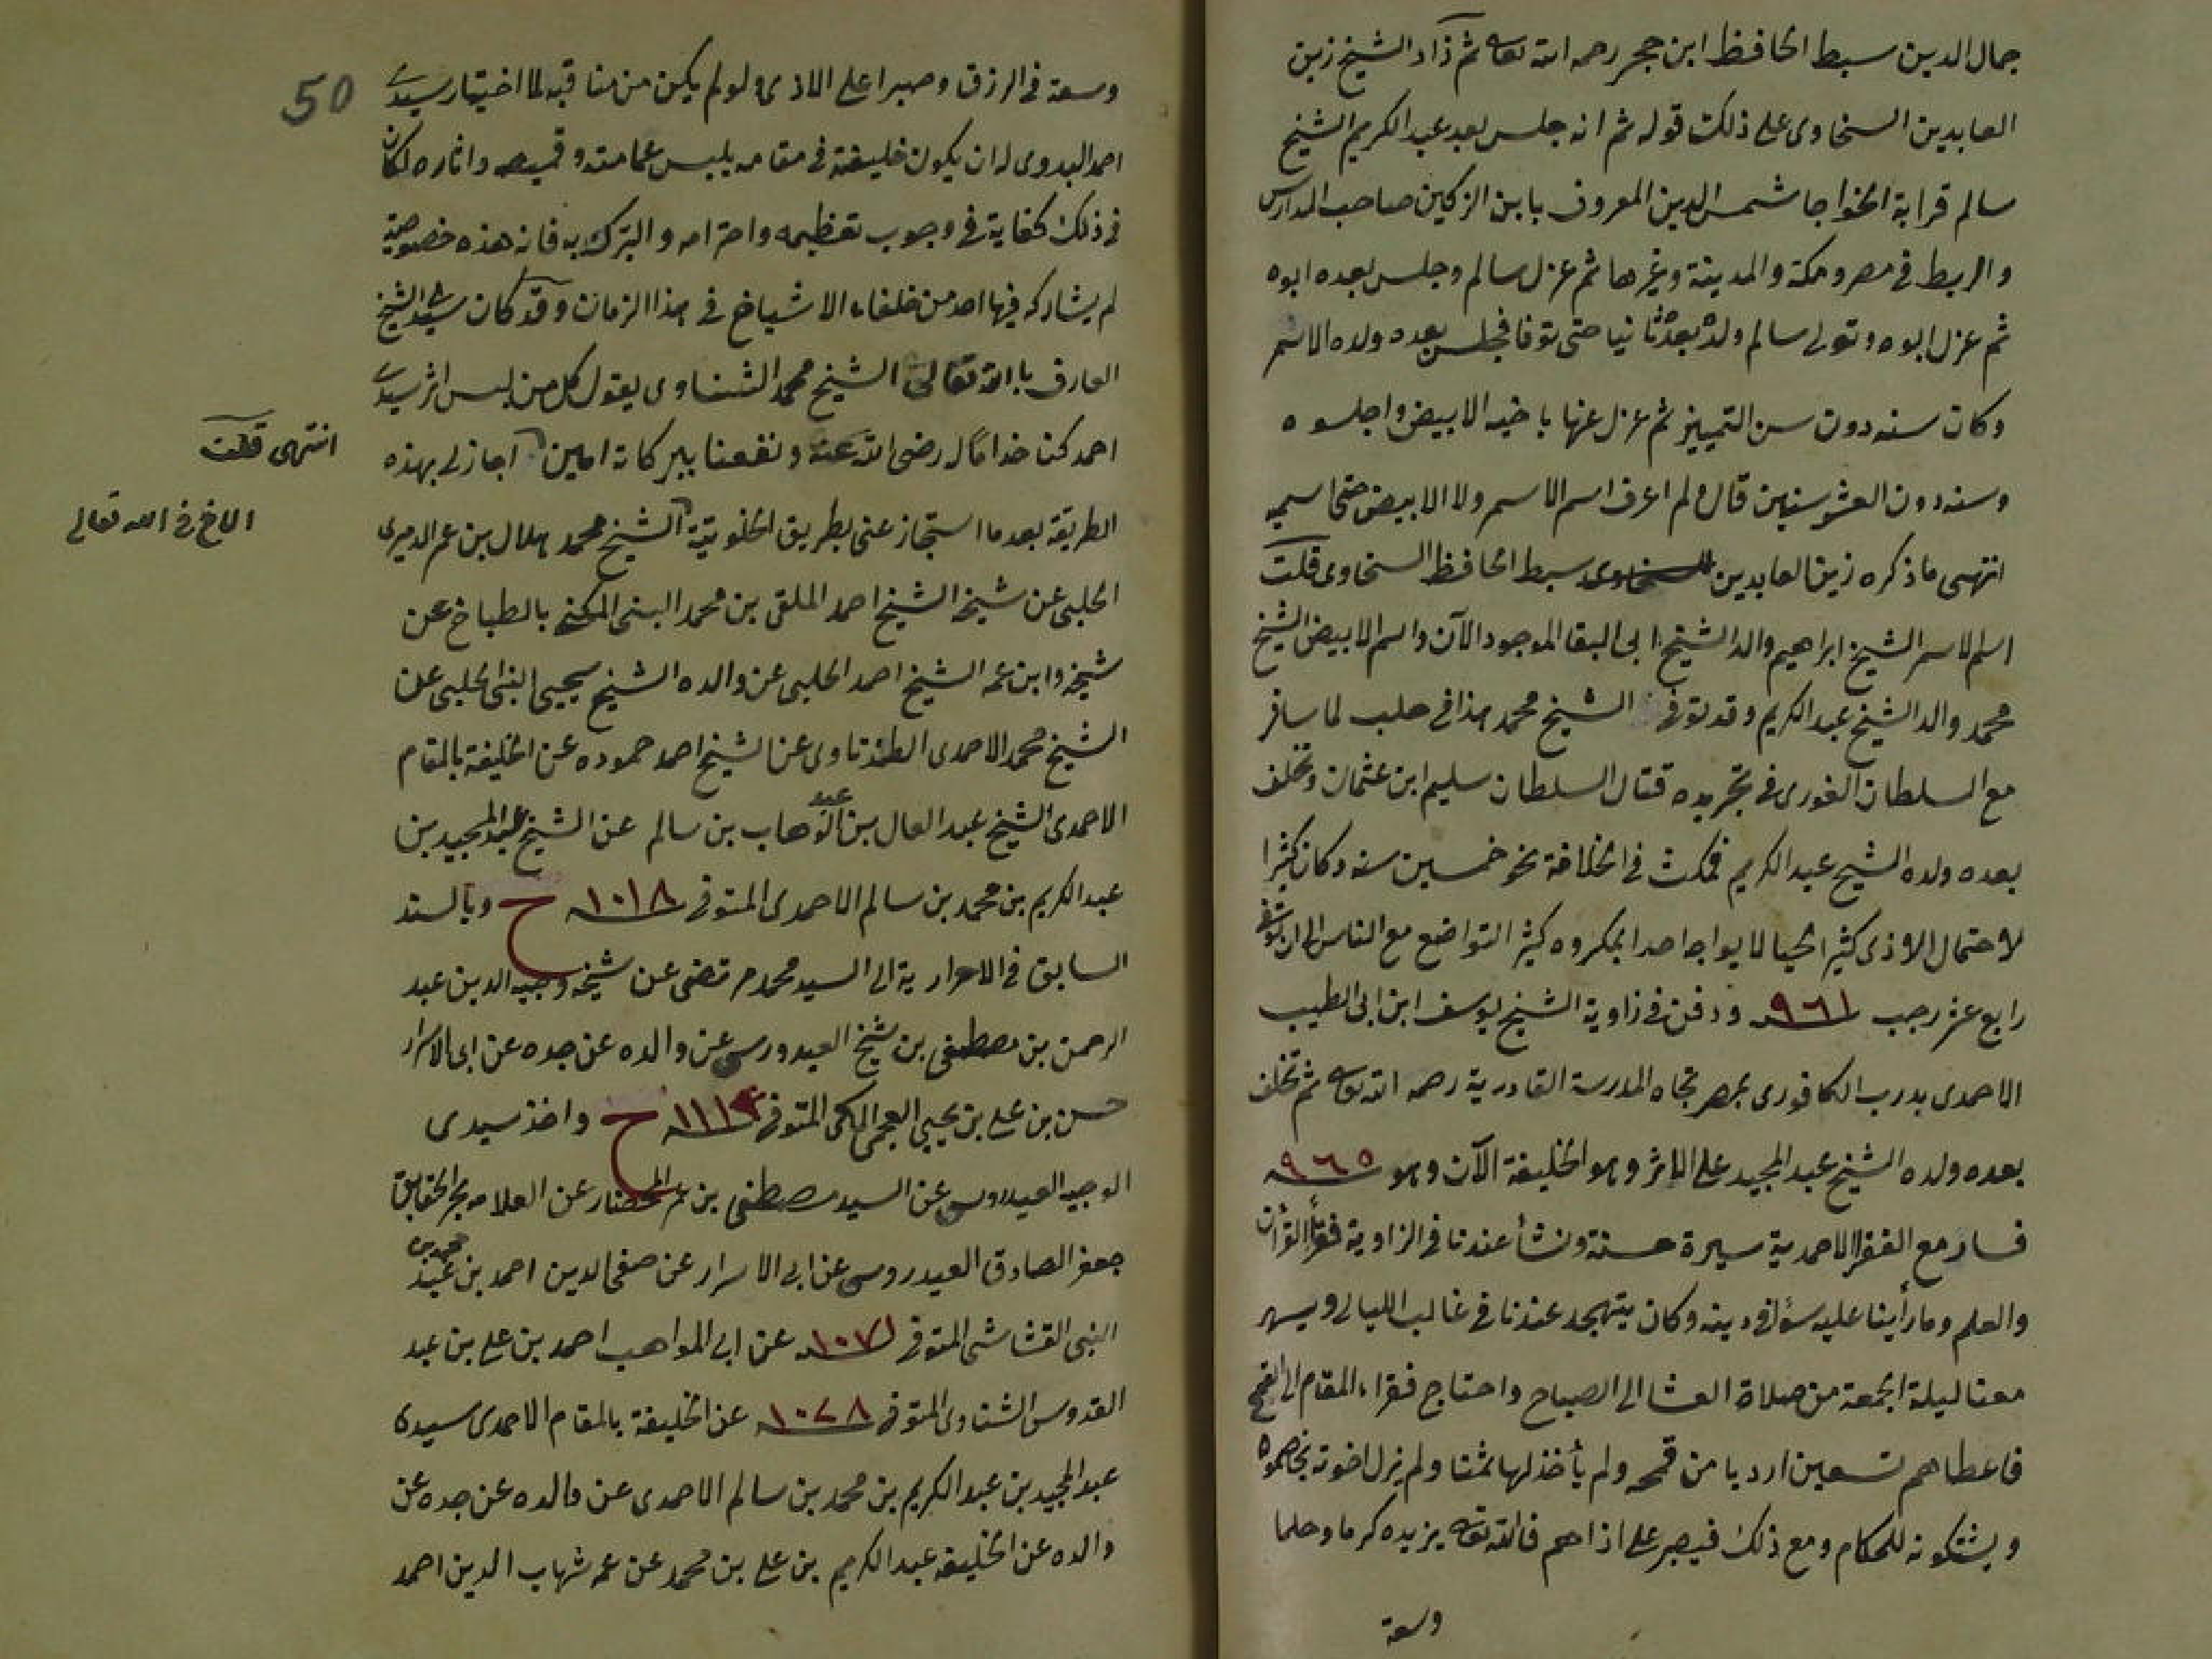 جمال الدين سبط الحافظ ابن حجر رحمه الله تعا ثم زاد الشيخ زين
العابدين السخاوى على ذلك قوله ثم انه جلس بعد عبد الكريم الشيخ
سالم قرابة الخواجا شمس الدين المعروف بابن الزكين صاحب المدارس
والربط فى مصر ومكة والمدينة وغيرها ثم عزل سالم وجلس بعده ابوه
ثم عزل ابوه وتولى سالم ولده بعده ثانيا حتى توفا فجلس بعده ولده الاسمر
وكان سنه دون سن التمييز ثم عزل عنها باخيه الابيض واجلسوه
وسنه دون العشر سنين قال ولم اعرف اسم الاسمر ولا الابيض حتى اسميه
انتهى ما ذكره زين العابدين سبط الحافظ السخاوى قلت
اسم الاسمر الشيخ ابراهيم والد الشيخ ابى البقا الموجود الآن واسم الابيض الشيخ
محمد والد الشيخ عبد الكريم وقد توفى الشيخ محمد هذا فى حلب لما سافر
مع السلطان الغورى فى تجريده قتال السلطان سليم ابن عثمان وتخلف
بعده ولده الشيخ عبد الكريم فمكث فى الخلافة نحو خمسين سنه وكان كثيرا
لاحتمال الاذى كثير الحيا لا يواجه احدا بمكروه كثير التواضع مع الناس الى ان توفى
رابع عشر رجب سنه ٩٦١ ودفن فى زاوية الشيخ يوسف ابن ابى الطيب
الاحمدى بدرب الكافورى بمصر تجاه المدرسة القادرية رحمه الله تعا ثم تخلف
بعده ولده الشيخ عبد المجيد على الاثر وهو الخليفة الآن وهو سنه ٩٦٥
فسار مع الفقرا الاحمدية سيرة حسنة ونشأ عندنا فى الزاوية فقرأ القرآن
والعلم وما رأينا عليه سؤا فى دينه وكان يتهجد عندنا فى غالب الليالى ويسهر
معنا ليلة الجمعة من صلاة العشا الى الصباح واحتاج فقراء المقام الى القمح
فاعطاهم تسعين اردبا من قمحه ولم يأخذ لها ثمنا ولم يزل اخوته يخاصموه
ويشكونه للحكام ومع ذلك فيصبر على اذاهم فالله تعا يزيده كرما وحلما
وسعة
50
وسعة فى الرزق وصبرا على الاذى ولو لم يكن من مناقبه الا اختيار سيدى
احمد البدوى له ان يكون خليفة فى مقامه يلبس عمامته وقميصه واثاره لكان
فى ذلك كفاية فى وجوب تعظيمه واحترامه والتبرك به فانه هذه خصوصية
لم يشاركه فيها احد من خلفاء الاشياخ فى هذا الزمان وقد كان سيدى الشيخ
العارف باالله تعالى الشيخ محمد الشناوى يقول كل من لبس اثر سيدى
احمد كنا خداما له رضى الله عنه ونفعنا ببركاته امين اجازلى بهذه
انتهى قلت
الطريقة بعد ما استجاز عنى بطريق الخلوتية الشيخ محمد هلال بن عمر الدميرى
الاخ فى الله تعالى
الحلبى عن شيخه الشيخ احمد الملقى بن محمد البنى المكنى بالطباخ عن
شيخه وابن عمه الشيخ احمد الحلبى عن والده الشيخ يحيى البنى الحلبى عن
الشيخ محمد الاحمدى الطندتاوى عن الشيخ احمد حموده عن الخليفة بالمقام
الاحمدى الشيخ عبد العال بن عبد الوهاب بن سالم عن الشيخ عبد المجيد بن
عبد الكريم بن محمد بن سالم الاحمدى المتوفى سنه ١٠١٨ ح وبالسند
السابق فى الاحرارية الى السيد محمد مرتضى عن شيخه وجيه الدين عبد
الرحمن بن مصطفى بن شيخ العيدروس عن والده عن جده عن ابى الاسرار
حسن بن على بن يحيى العجمى المكى المتوفى سنه ١١١٣ ح واخذ سيدى
الوجيه العيدروس عن السيد مصطفى بن عمر المحضار عن العلامه بحر الحقايق
جعفر الصادق العيدروس عن ابى الاسرار عن صفى الدين احمد بن محمد بن عبد
النبى القشاشى المتوفى سنه ١٠٧١ عن ابى المواهب احمد بن على بن عبد
القدوس الشناوى المتوفى سنه ١٠٢٨ عن الخليفة بالمقام الاحمدى سيدى
عبد المجيد بن عبد الكريم بن محمد بن سالم الاحمدى عن والده عن جده عن
والده عن الخليفه عبد الكريم بن على بن محمد عن عمه شهاب الدين احمد